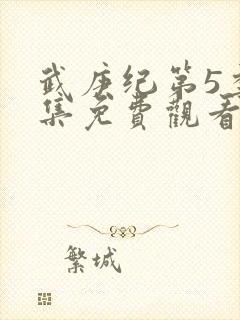 武庚纪第5季
集免費觀看
繁城